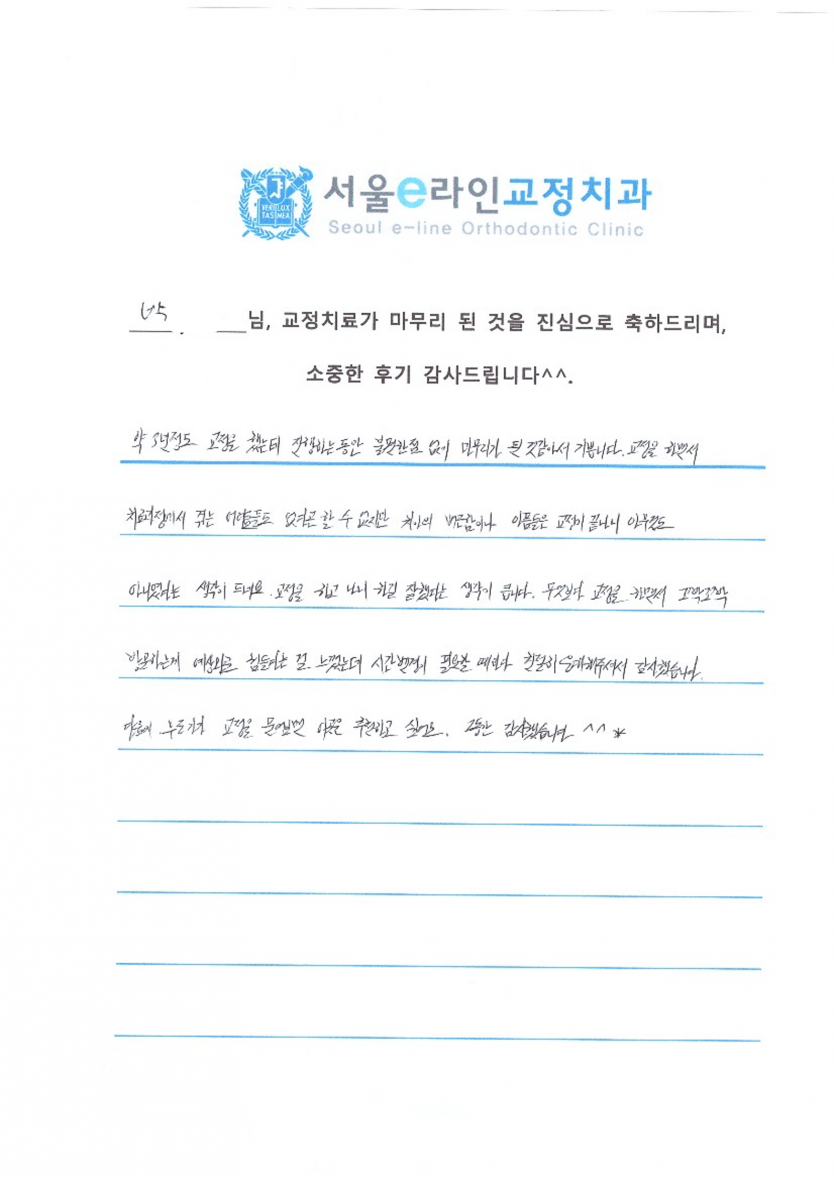 서울e라인교정치과
VERI LUX TAS MEA
Seoul e-line Orthodontic Clinic
님, 교정치료가 마무리 된 것을 진심으로 축하드리며,
소중한 후기 감사드립니다^^.
약 정도 교정을 했는데 진행하는동안 불편한점 없이 마무리가 된 것같아서 기쁩니다. 교정을 하면서
치료과정에서 겪는 없다곤 할 수 없지만 치아의 이픔들은 교정이 끝나니 아무것도
아니었다는 생각이 드네요. 교정을 하고 나니 하길 잘했다는 생각이 큽니다. 무엇보다 교정을 하면서 꼬박꼬박
힘들다는 걸 느꼈는데 시간변경이 필요할 때마다 친절히 응대해주셔서 감사했습니다.
다음에 누군가가 교정을 추천하고 싶어요. 그동안 감사했습니다 ^^*